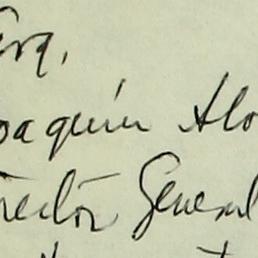 Sra,
oaquín Alo
rector General